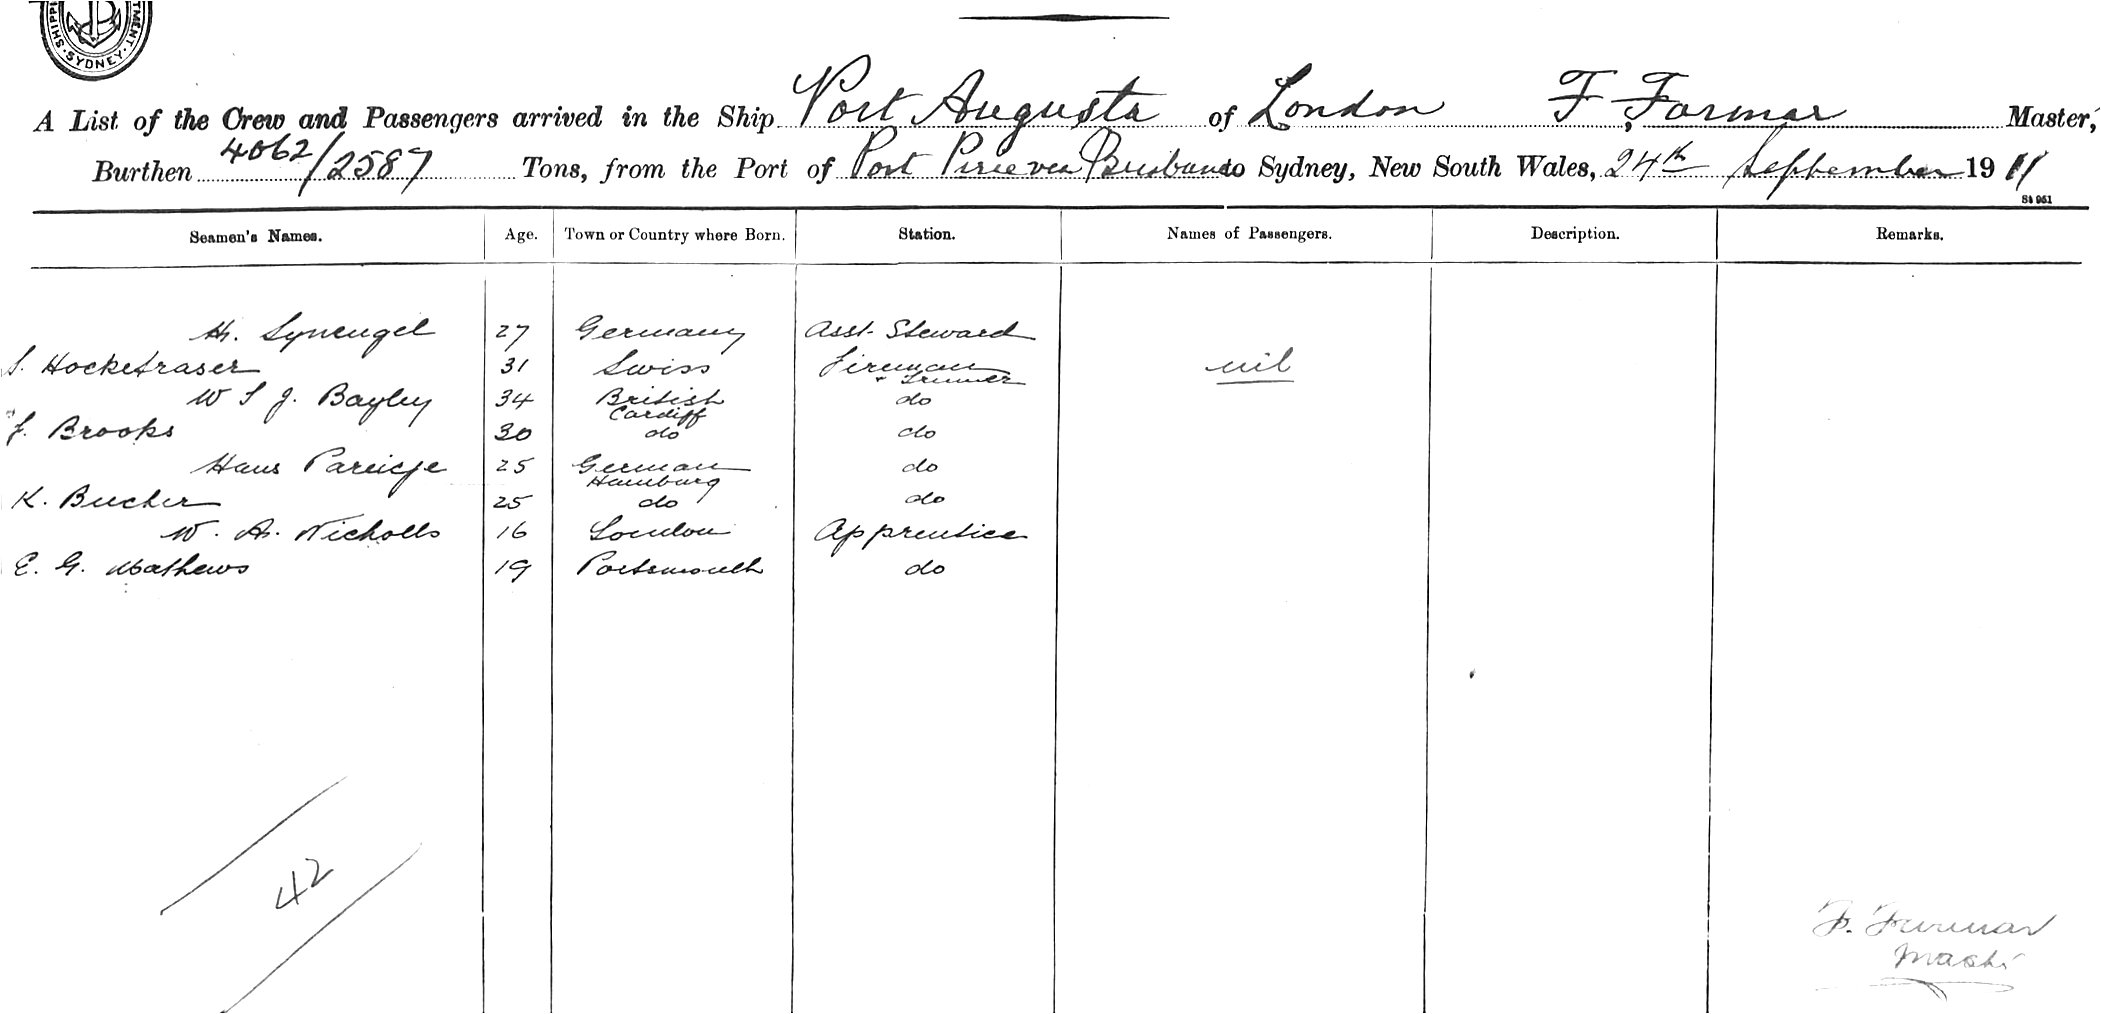 SHIPPI TMENT. SYDNEY.
A List of the Crew and Passengers arrived in the Ship Port Augusta of London F, Farmar Master,
Burthen 4062/2587 Tons, from the Port of Port Pirie via Brisbane to Sydney, New South Wales, 24th September 1911
St 951
Seamen's Names. Age. Town or Country where Born. Station. Names of Passengers. Description. Remarks.
27 Germany Asst. Steward
S. 31 Swiss Fireman & Trimmer nil
W S J. Bayley 34 British Cardiff do
J. Brooks 30 do do
Hans 25 German Hamburg do
K. Bucher 25 do do
W. A. Nicholls 16 London Apprentice
E. G. Mathews 19 Portsmouth do
42
F. Farmar
Master